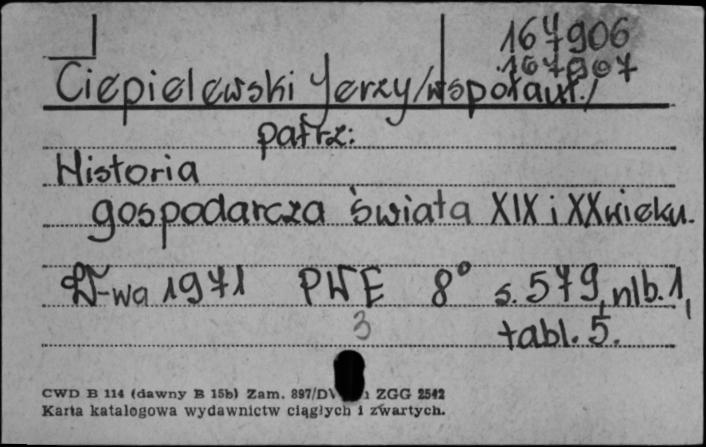 167906
167907
Ciepielewski Jerzy/współaut./
patrz:
Historia
gospodarcza świata XIX i XX wieku.
W-wa 1971 PWE 8° s. 579, nlb. 1,
tabl. 5.
3
CWD B 114 (dawny B 15b) Zam. 897/DV ZGG 2542
Karta katalogowa wydawnictw ciągłych i zwartych.